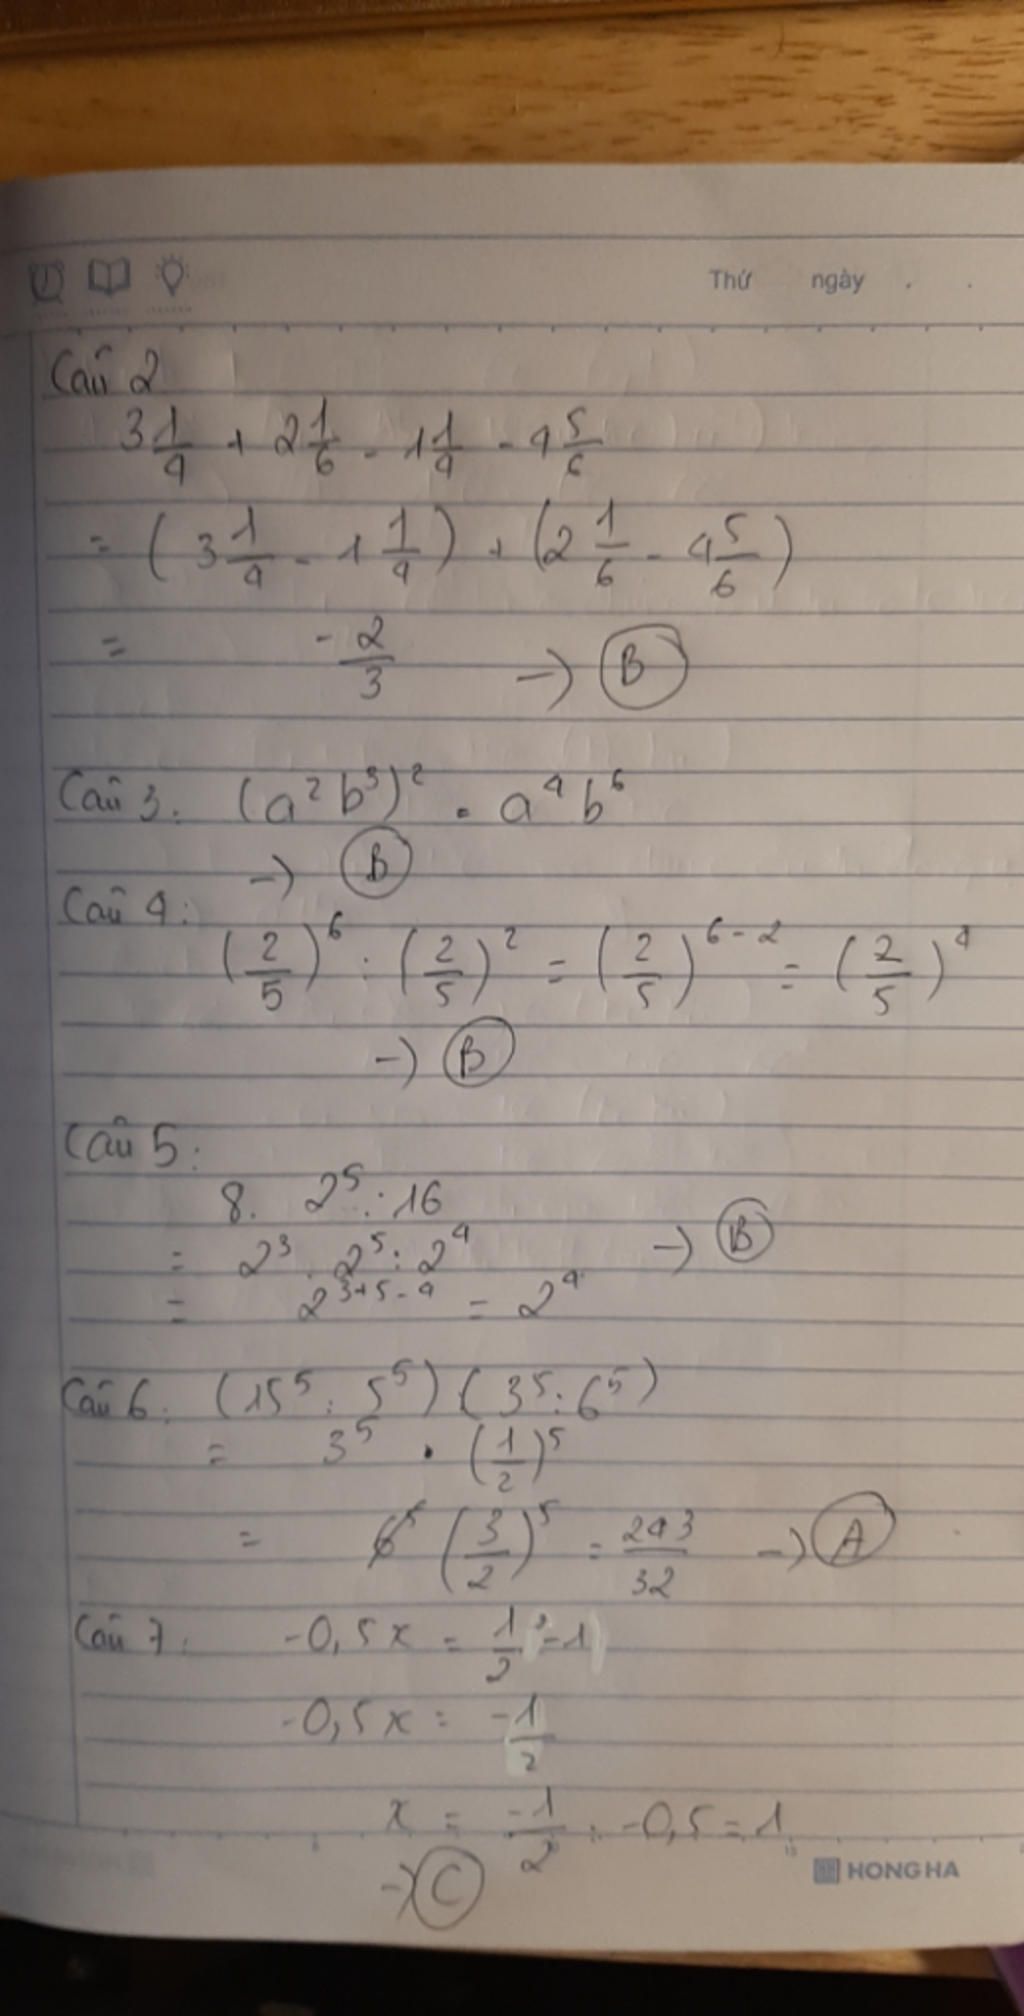 Thứ ngày . .
Câu 2
3 1/4 + 2 1/6 - 1 1/4 - 4 5/6
= (3 1/4 - 1 1/4) + (2 1/6 - 4 5/6)
= -2/3 -> B
Câu 3: (a² b³)² = a⁴ b⁶
-> B
Câu 4:
(2/5)⁶ : (2/5)² = (2/5)⁶⁻² = (2/5)⁴
-> B
Câu 5:
8. 2⁵ : 16
= 2³ . 2⁵ : 2⁴ -> B
= 2³⁺⁵⁻⁴ = 2⁴
Câu 6: (15⁵ : 5⁵) (3⁵ : 6⁵)
= 3⁵ . (1/2)⁵
= (3/2)⁵ = 243/32 -> A
Câu 7: -0,5x = 1/2 - 1
-0,5x = -1/2
x = -1/2 : -0,5 = 1
-> C
HONG HA